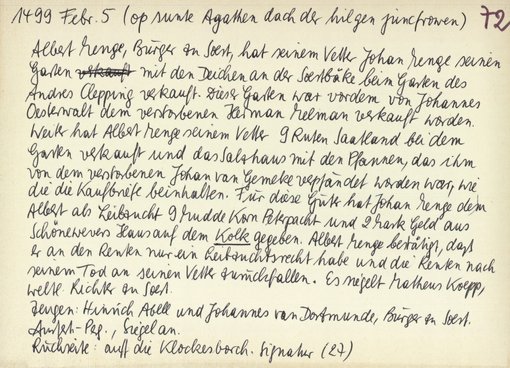 1499 Febr. 5 (op sunte Agathen dach der hilgen juncfrowen) 72
Albert Menge, Bürger zu Soest, hat seinem Vetter Johan Menge seinen
Garten verkauft mit den Deichen an der Soestbäke beim Garten des
Andres Clepping verkauft. Dieser Garten war vordem von Johannes
Oesterwalt dem verstorbenen Herman Meelman verkauft worden.
Weiter hat Albert Menge seinem Vetter 9 Ruten Saatland bei dem
Garten verkauft und das Salzhaus mit den Pfannen, das ihm
von dem verstorbenen Johan van Gemeke verpfändet worden war, wie
die die Kaufbriefe beinhalten. Für diese Güter hat Johan Menge dem
Albert als Leibzucht 9 Mudde Korn Petzpacht und 2 Mark Geld aus
Schönewevers Haus auf dem Kolk gegeben. Albert Menge bestätigt, dast
er an den Renten nur ein Leibzuchtsrecht habe und die Renten nach
seinem Tod an seinen Vetter zurückfallen. Es siegelt Matheus Koepp,
weltl. Richter zu Soest.
Zeugen: Hinrich Abell und Johannes van Dortmunde, Bürger zu Soest.
Ausf.-Pag., Siegel an.
Rückseite: auff die Klockesborch. Signatur (27)